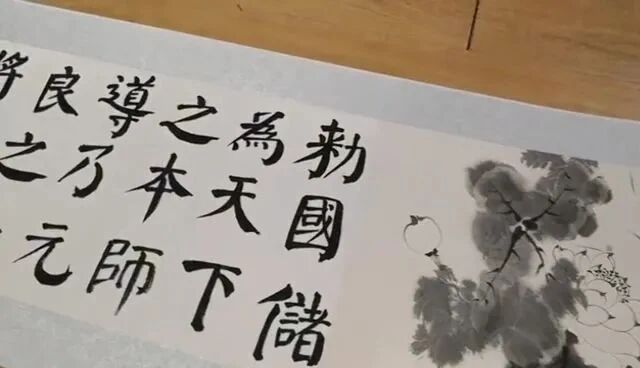 勅國儲
為天下
之本師
導乃元
良之
將